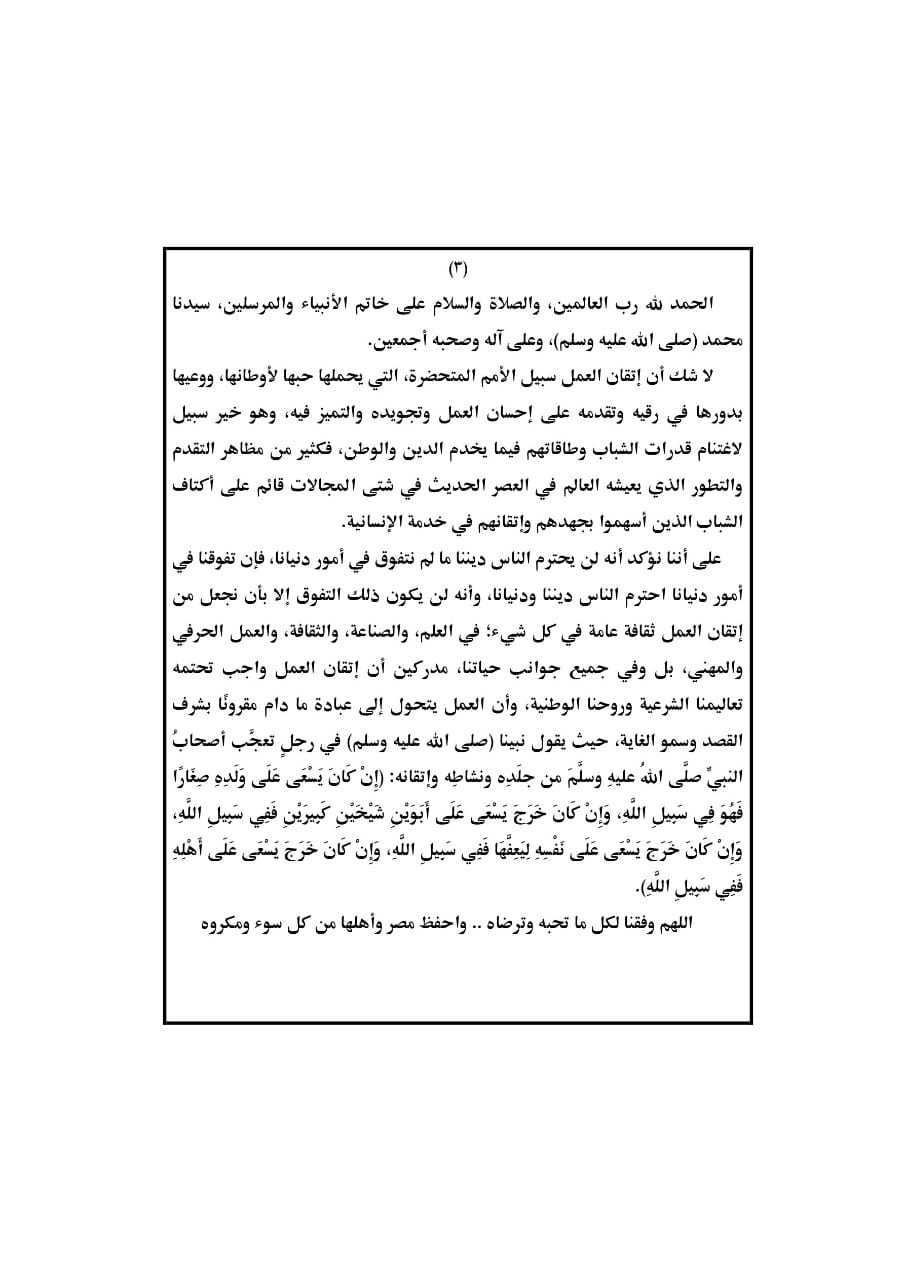 (٣)
الحمد لله رب العالمين، والصلاة والسلام على خاتم الأنبياء والمرسلين، سيدنا
محمد (صلى الله عليه وسلم)، وعلى آله وصحبه أجمعين.
لا شك أن إتقان العمل سبيل الأمم المتحضرة، التي يحملها حبها لأوطانها، ووعيها
بدورها في رقيه وتقدمه على إحسان العمل وتجويده والتميز فيه، وهو خير سبيل
لاغتنام قدرات الشباب وطاقاتهم فيما يخدم الدين والوطن، فكثير من مظاهر التقدم
والتطور الذي يعيشه العالم في العصر الحديث في شتى المجالات قائم على أكتاف
الشباب الذين أسهموا بجهدهم وإتقانهم في خدمة الإنسانية.
على أننا نؤكد أنه لن يحترم الناس ديننا ما لم نتفوق في أمور دنيانا، فإن تفوقنا في
أمور دنيانا احترم الناس ديننا ودنيانا، وأنه لن يكون ذلك التفوق إلا بأن نجعل من
إتقان العمل ثقافة عامة في كل شيء؛ في العلم، والصناعة، والثقافة، والعمل الحرفي
والمهني، بل وفي جميع جوانب حياتنا، مدركين أن إتقان العمل واجب تحتمه
تعاليمنا الشرعية وروحنا الوطنية، وأن العمل يتحول إلى عبادة ما دام مقرونًا بشرف
القصد وسمو الغاية، حيث يقول نبينا (صلى الله عليه وسلم) في رجلٍ تعجَّب أصحابُ
النبيِّ صلَّى اللهُ عليهِ وسلَّمَ من جلَدِه ونشاطِه وإتقانه: (إِنْ كَانَ يَسْعَى عَلَى وَلَدِهِ صِغَارًا
فَهُوَ فِي سَبِيلِ اللَّهِ، وَإِنْ كَانَ خَرَجَ يَسْعَى عَلَى أَبَوَيْنِ شَيْخَيْنِ كَبِيرَيْنِ فَفِي سَبِيلِ اللَّهِ،
وَإِنْ كَانَ خَرَجَ يَسْعَى عَلَى نَفْسِهِ لِيَعِفَّهَا فَفِي سَبِيلِ اللَّهِ، وَإِنْ كَانَ خَرَجَ يَسْعَى عَلَى أَهْلِهِ
فَفِي سَبِيلِ اللَّهِ).
اللهم وفقنا لكل ما تحبه وترضاه .. واحفظ مصر وأهلها من كل سوء ومكروه